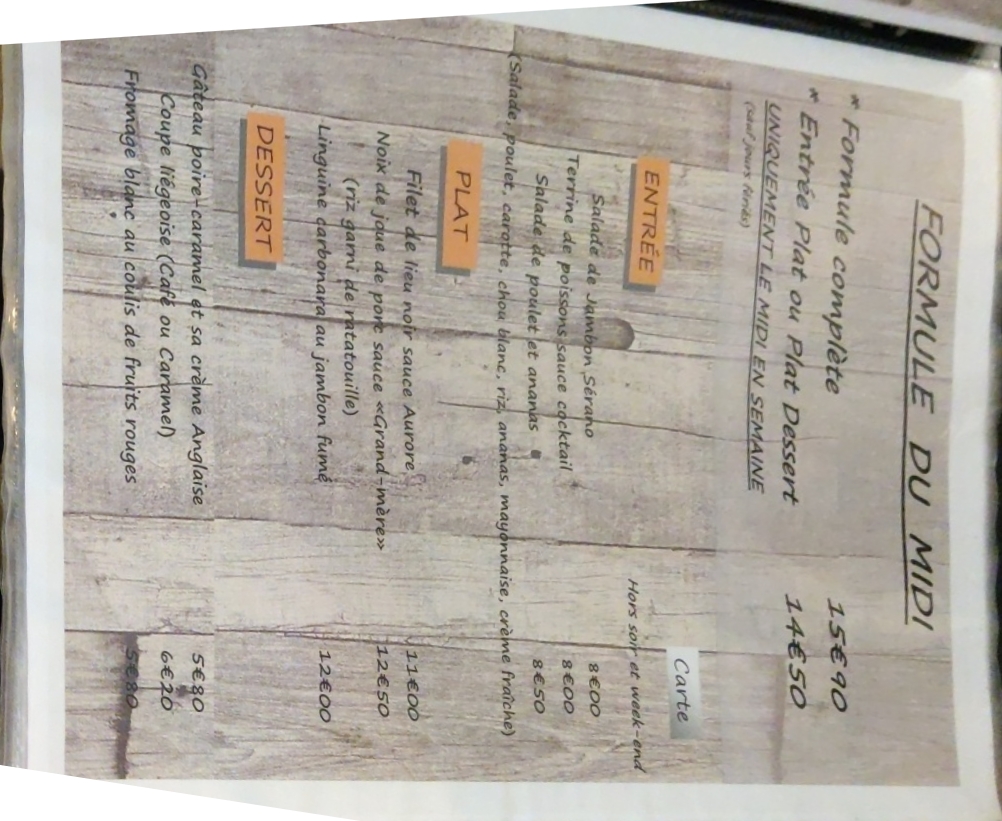 FORMULE DU MIDI
* Formule complète 15€90
* Entrée Plat ou Plat Dessert 14€50
UNIQUEMENT LE MIDI EN SEMAINE
(sauf jours fériés)
Carte
Hors soir et week-end
ENTRÉE
Salade de Jambon Sérano 8€00
Terrine de poissons sauce cocktail 8€00
Salade de poulet et ananas 8€50
(Salade, poulet, carotte, chou blanc, riz, ananas, mayonnaise, crème fraîche)
PLAT
Filet de lieu noir sauce Aurore 11€00
Noix de joue de porc sauce «Grand-mère» 12€50
(riz garni de ratatouille)
Linguine carbonara au jambon fumé 12€00
DESSERT
Gâteau poire-caramel et sa crème Anglaise 5€80
Coupe liégeoise (Café ou Caramel) 6€20
Fromage blanc au coulis de fruits rouges 5€80